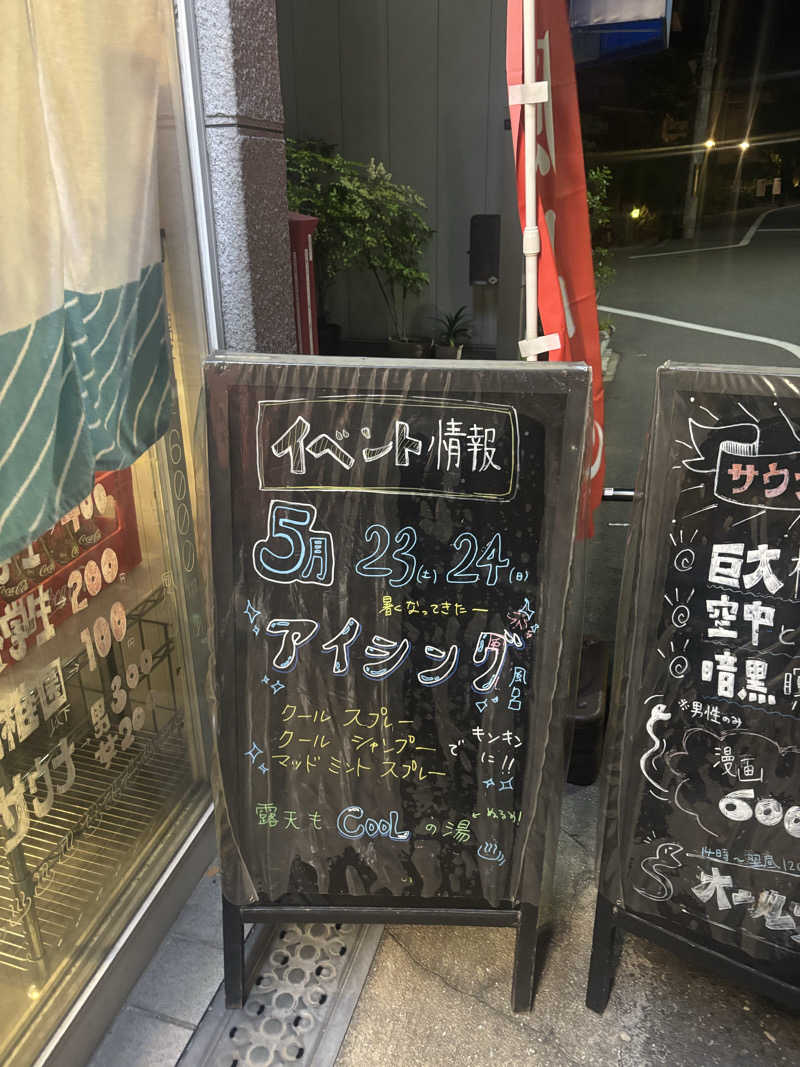 イベント情報
5月 23(土) 24(日)
暑くなってきたー
アイシング
風呂
クール スプレー
クール シャンプー
マッド ミント スプレー
で キンキン
に!!
露天も COOL の湯
←ぬるめ!
サウナ
巨大
空中と
暗黒
※男性のみ
漫画
600
14時〜翌昼12
オールナ
6000
400
学生→200
100
稚園
男300
女20
サウナ
Coca-Cola